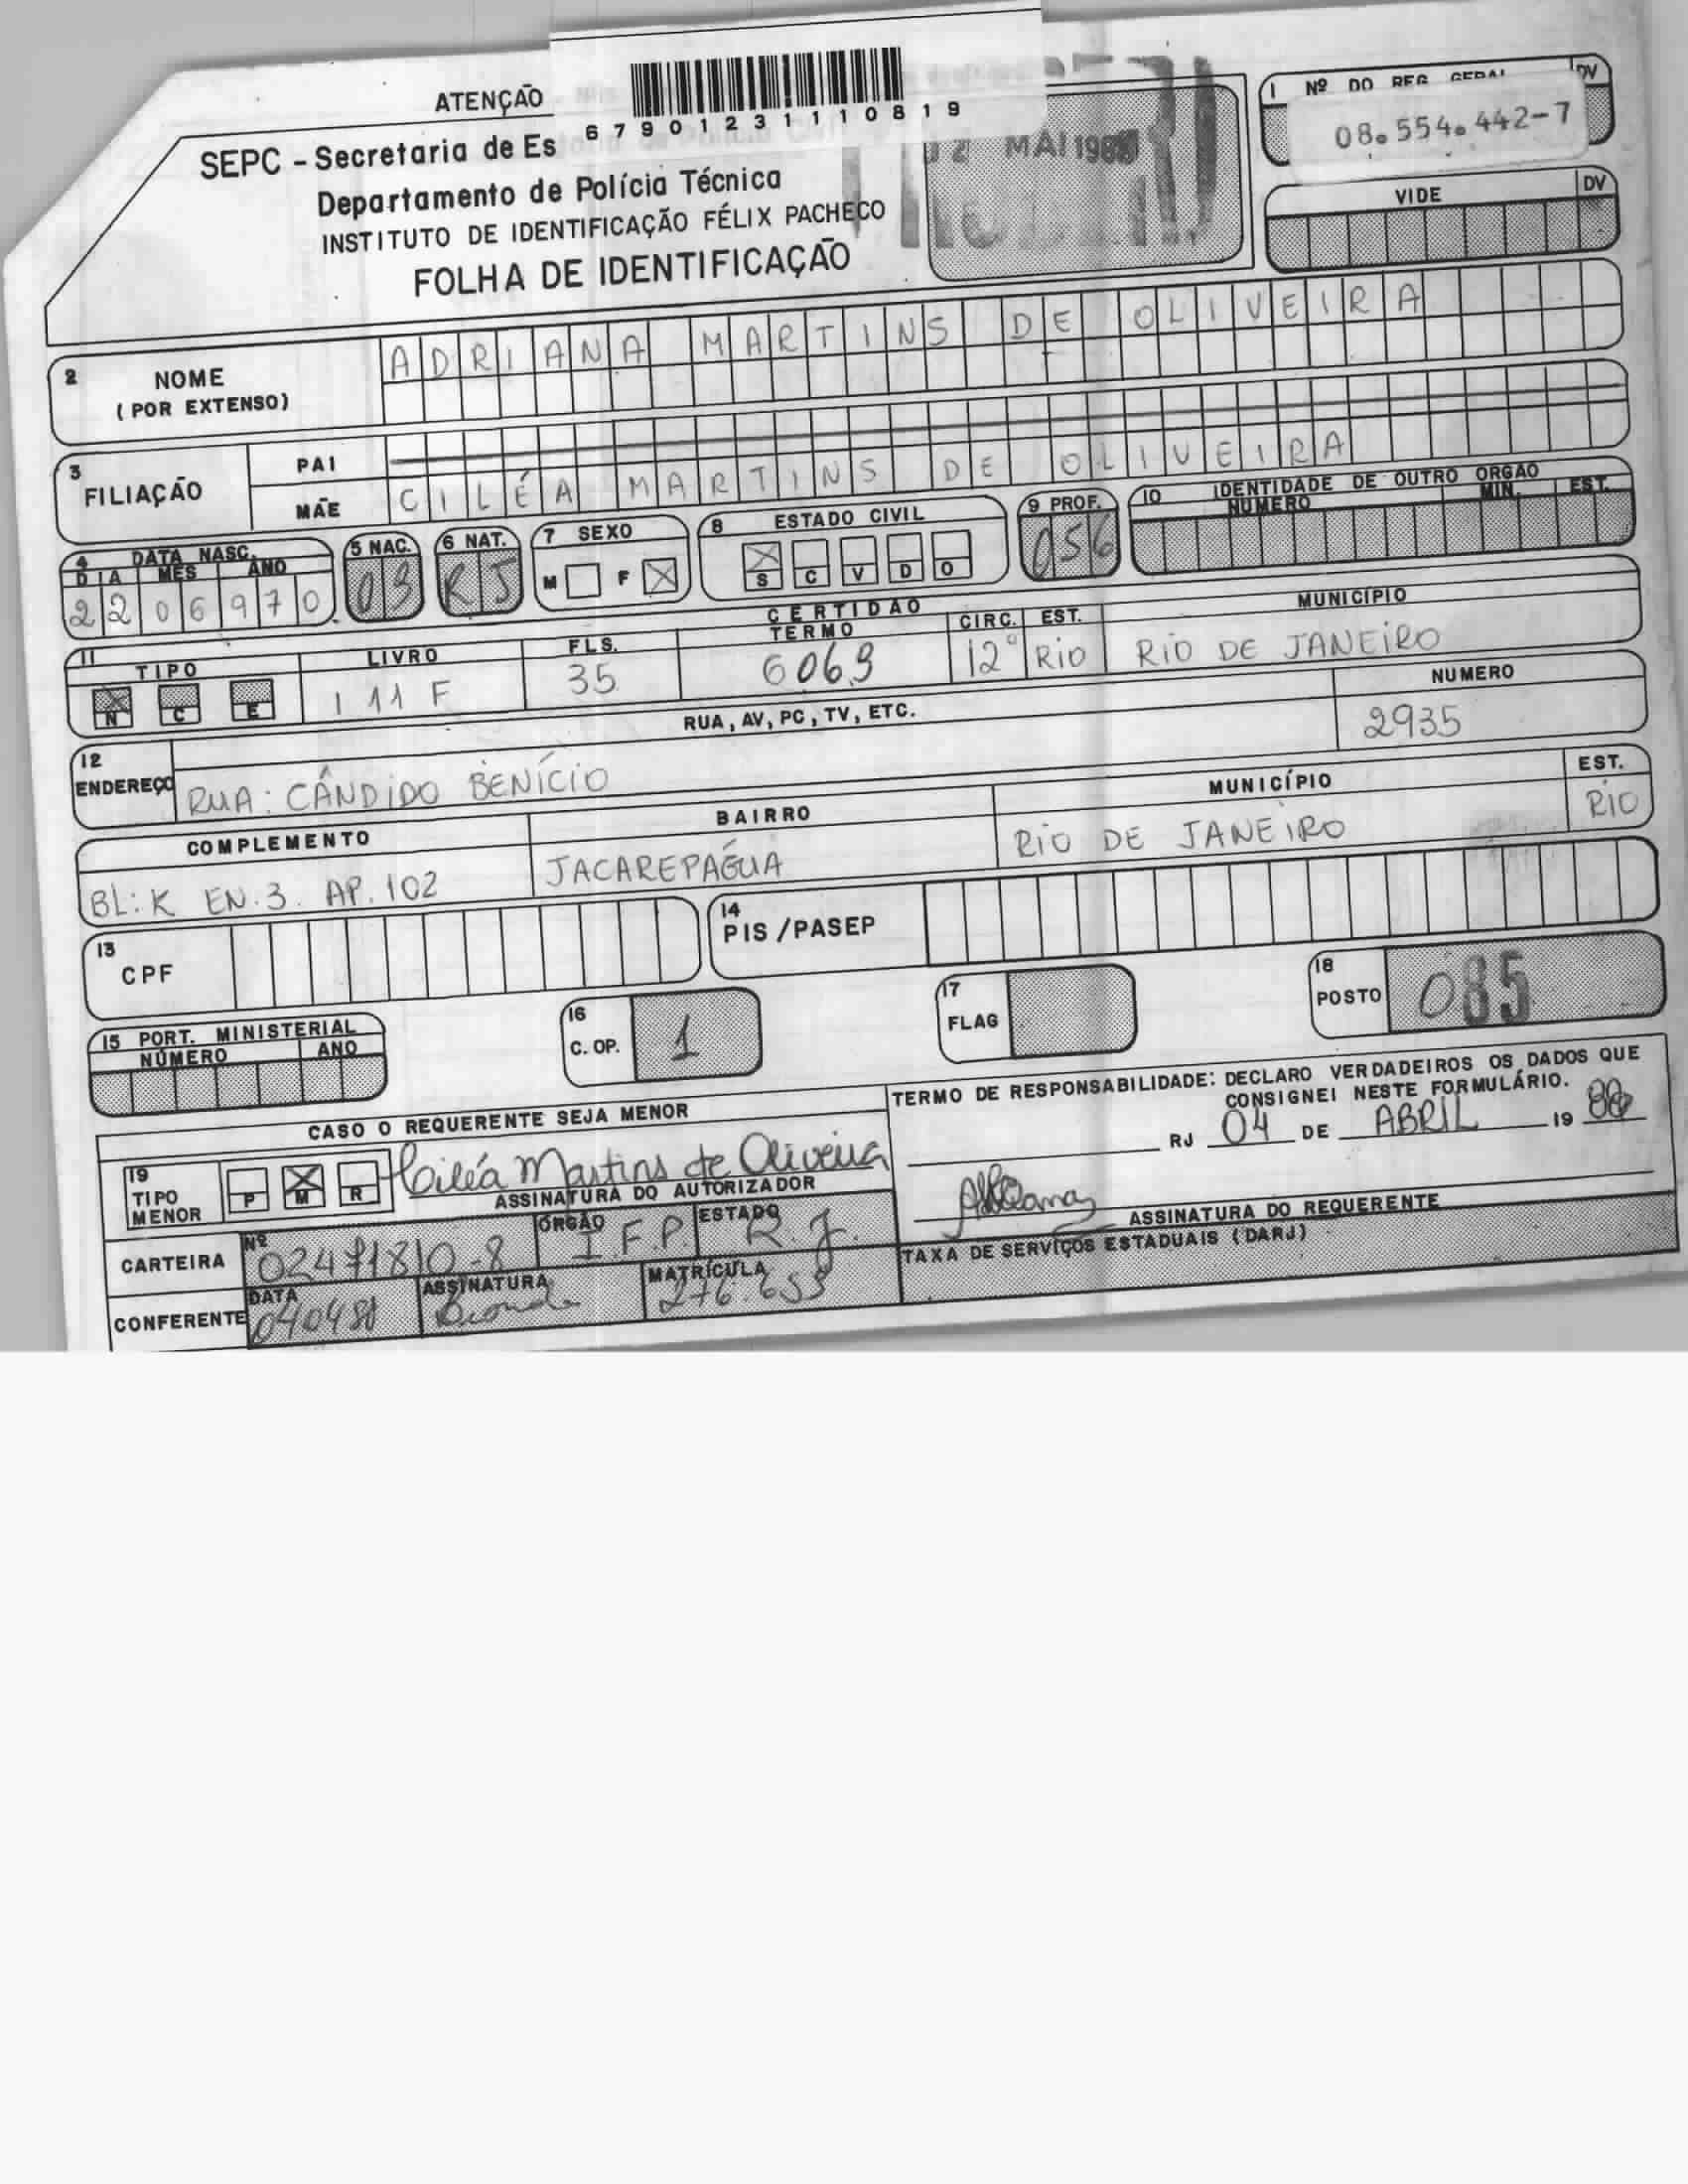 ATENÇÃO
67901231110819
SEPC - Secretaria de Es
Departamento de Polícia Técnica
INSTITUTO DE IDENTIFICAÇÃO FÉLIX PACHECO
FOLHA DE IDENTIFICAÇÃO
12 MAI 1988
1 Nº DO REG. GERAL DV
08.554.442-7
VIDE DV
2 NOME
(POR EXTENSO)
ADRIANA MARTINS DE OLIVEIRA
3 FILIAÇÃO
PAI
MÃE CILÉA MARTINS DE OLIVEIRA
4 DATA NASC.
DIA MÊS ANO
22 06 970
5 NAC.
03
6 NAT.
RJ
7 SEXO
M F X
8 ESTADO CIVIL
X
S C V D O
9 PROF.
056
10 IDENTIDADE DE OUTRO ORGÃO
NUMERO MIN. EST.
CERTIDÃO
11 TIPO LIVRO FLS. TERMO CIRC. EST. MUNICÍPIO
N C E 111 F 35 6069 12º RIO RIO DE JANEIRO
12 ENDEREÇO
RUA, AV, PC, TV, ETC. NUMERO
RUA: CÂNDIDO BENÍCIO 2935
COMPLEMENTO BAIRRO MUNICÍPIO EST.
BL: K EN. 3. AP. 102 JACAREPAGUÁ RIO DE JANEIRO RIO
13 CPF
14 PIS/PASEP
15 PORT. MINISTERIAL
NÚMERO ANO
16 C. OP. 1
17 FLAG
18 POSTO 085
CASO O REQUERENTE SEJA MENOR
19 TIPO MENOR
P M R
Ciléa Martins de Oliveira
ASSINATURA DO AUTORIZADOR
CARTEIRA Nº 02471810-8 ÓRGÃO I.F.P. ESTADO R.J.
CONFERENTE DATA 040488 ASSINATURA MATRÍCULA 276.653
TERMO DE RESPONSABILIDADE: DECLARO VERDADEIROS OS DADOS QUE
CONSIGNEI NESTE FORMULÁRIO.
RJ 04 DE ABRIL 19 88
ASSINATURA DO REQUERENTE
TAXA DE SERVIÇOS ESTADUAIS (DARJ)